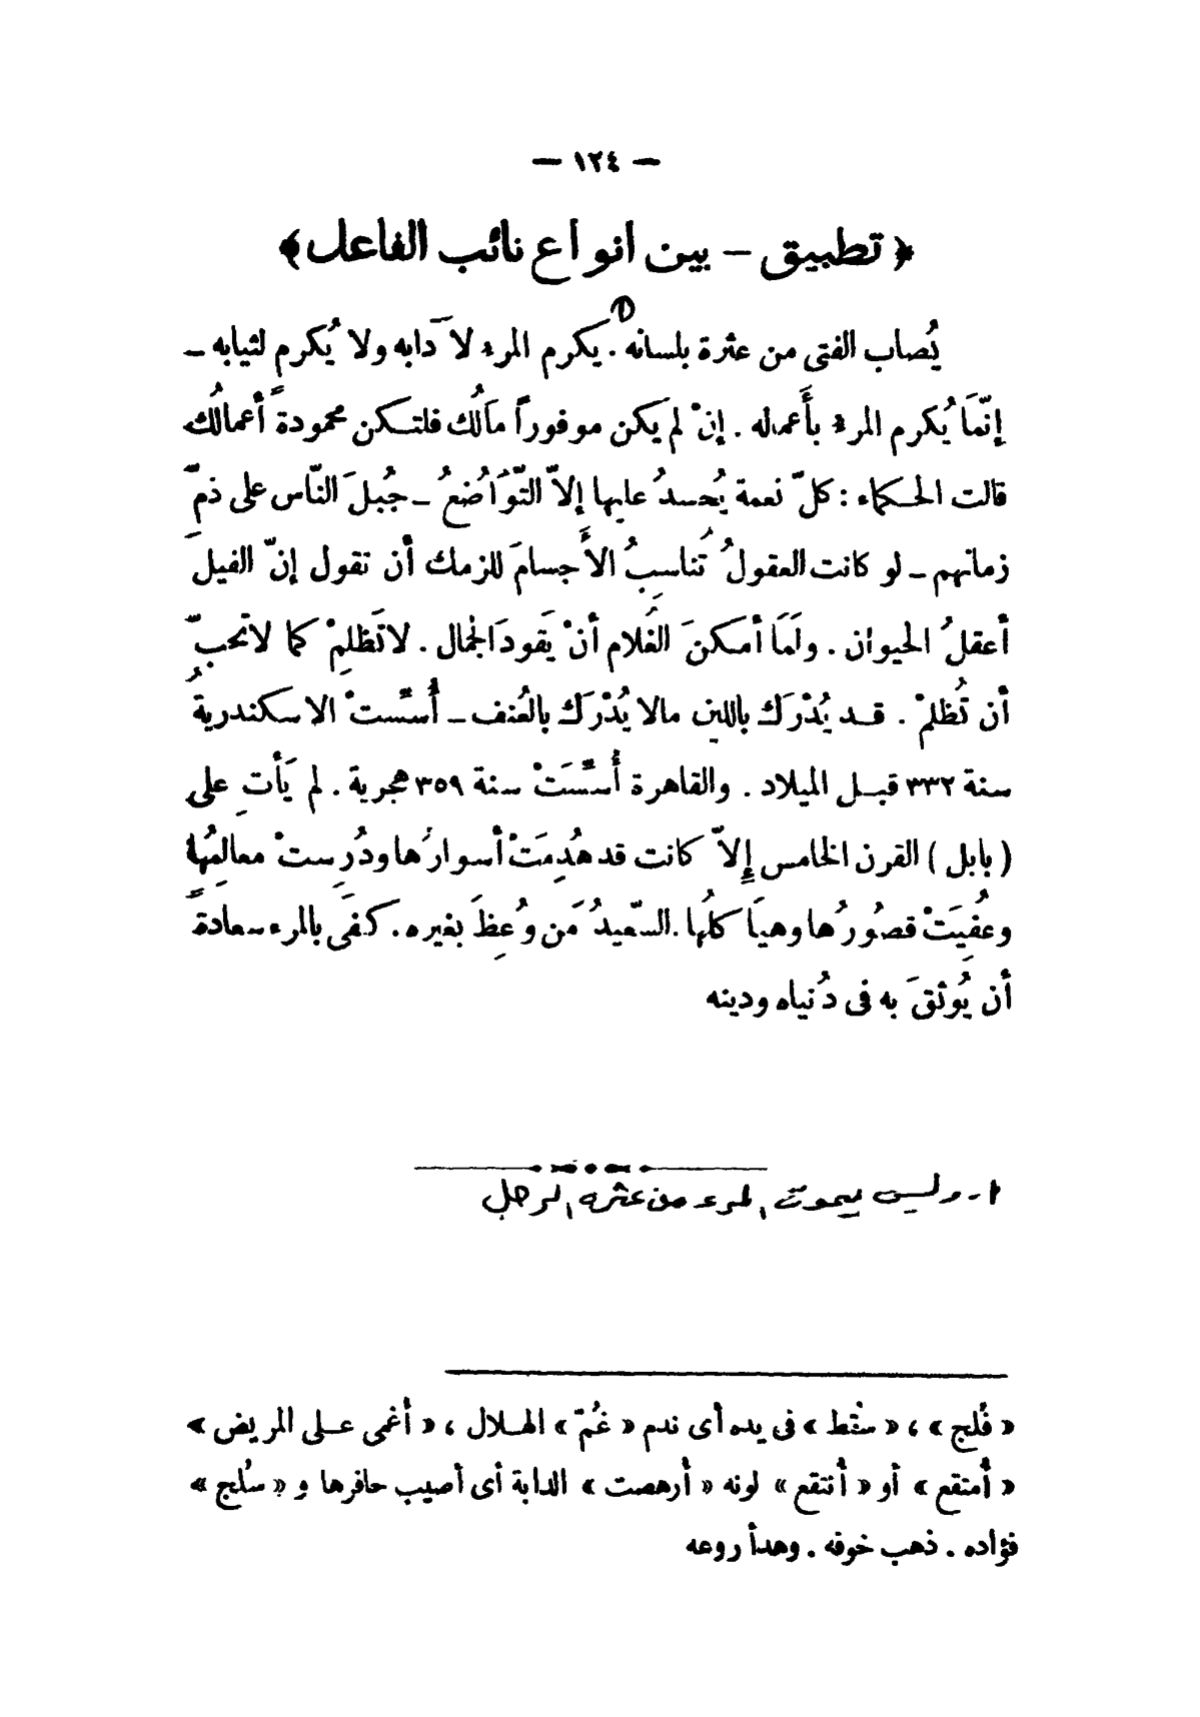 — ١٢٤ —
﴿ تطبيق – بين انواع نائب الفاعل ﴾
يُصاب الفتى من عثرة بلسانه (١). يكرم المرء لآدابه ولا يُكرم لثيابه –
إنّمَا يُكرم المرء بأَعماله . إنْ لم يكن موفوراً مالُك فلتكن محمودةً أعمالُك
قالت الحكماء : كلّ نعمة يُحسدُ عليها إلاّ التّوَاضُعُ – جُبلَ النّاس على ذمِّ
زمانهم – لو كانت العقولُ تُناسِبُ الأَجسامَ للزمك أن تقول إنّ الفيلَ
أعقلُ الحيوان . ولَمَا أمكنَ الغُلام أنْ يَقودَ الجمال . لا تَظلِمْ كما لا تحبّ
أن تُظلمْ . قد يُدْرَك باللين مالا يُدْرَك بالعُنف – أُسِّستْ الاسكندريةُ
سنة ٣٣٢ قبل الميلاد . والقاهرة أُسِّسَتْ سنة ٣٥٩ هجرية . لم يَأتِ على
( بابل ) القرن الخامس إِلاّ كانت قد هُدِمَتْ أسوارُها ودُرِستْ معالمُها
وعُفِيَتْ قصُورُها وهياكلُها . السّعيدُ مَن وُعِظَ بغيره . كفَى بالمرء سعادةً
أن يُوثقَ به فى دُنياه ودينه
١ - وليس يموت المرء من عثرة الرجل
« فُلج » ، « سقُط » فى يده أى ندم « غُمّ » الهلال ، « أغمى على المريض »
« أُمتقع » أو « أُنتقع » لونه « أُرهصت » الدابة أى أصيب حافرها و « سُلج »
فؤاده . ذهب خوفه . وهدأ روعه